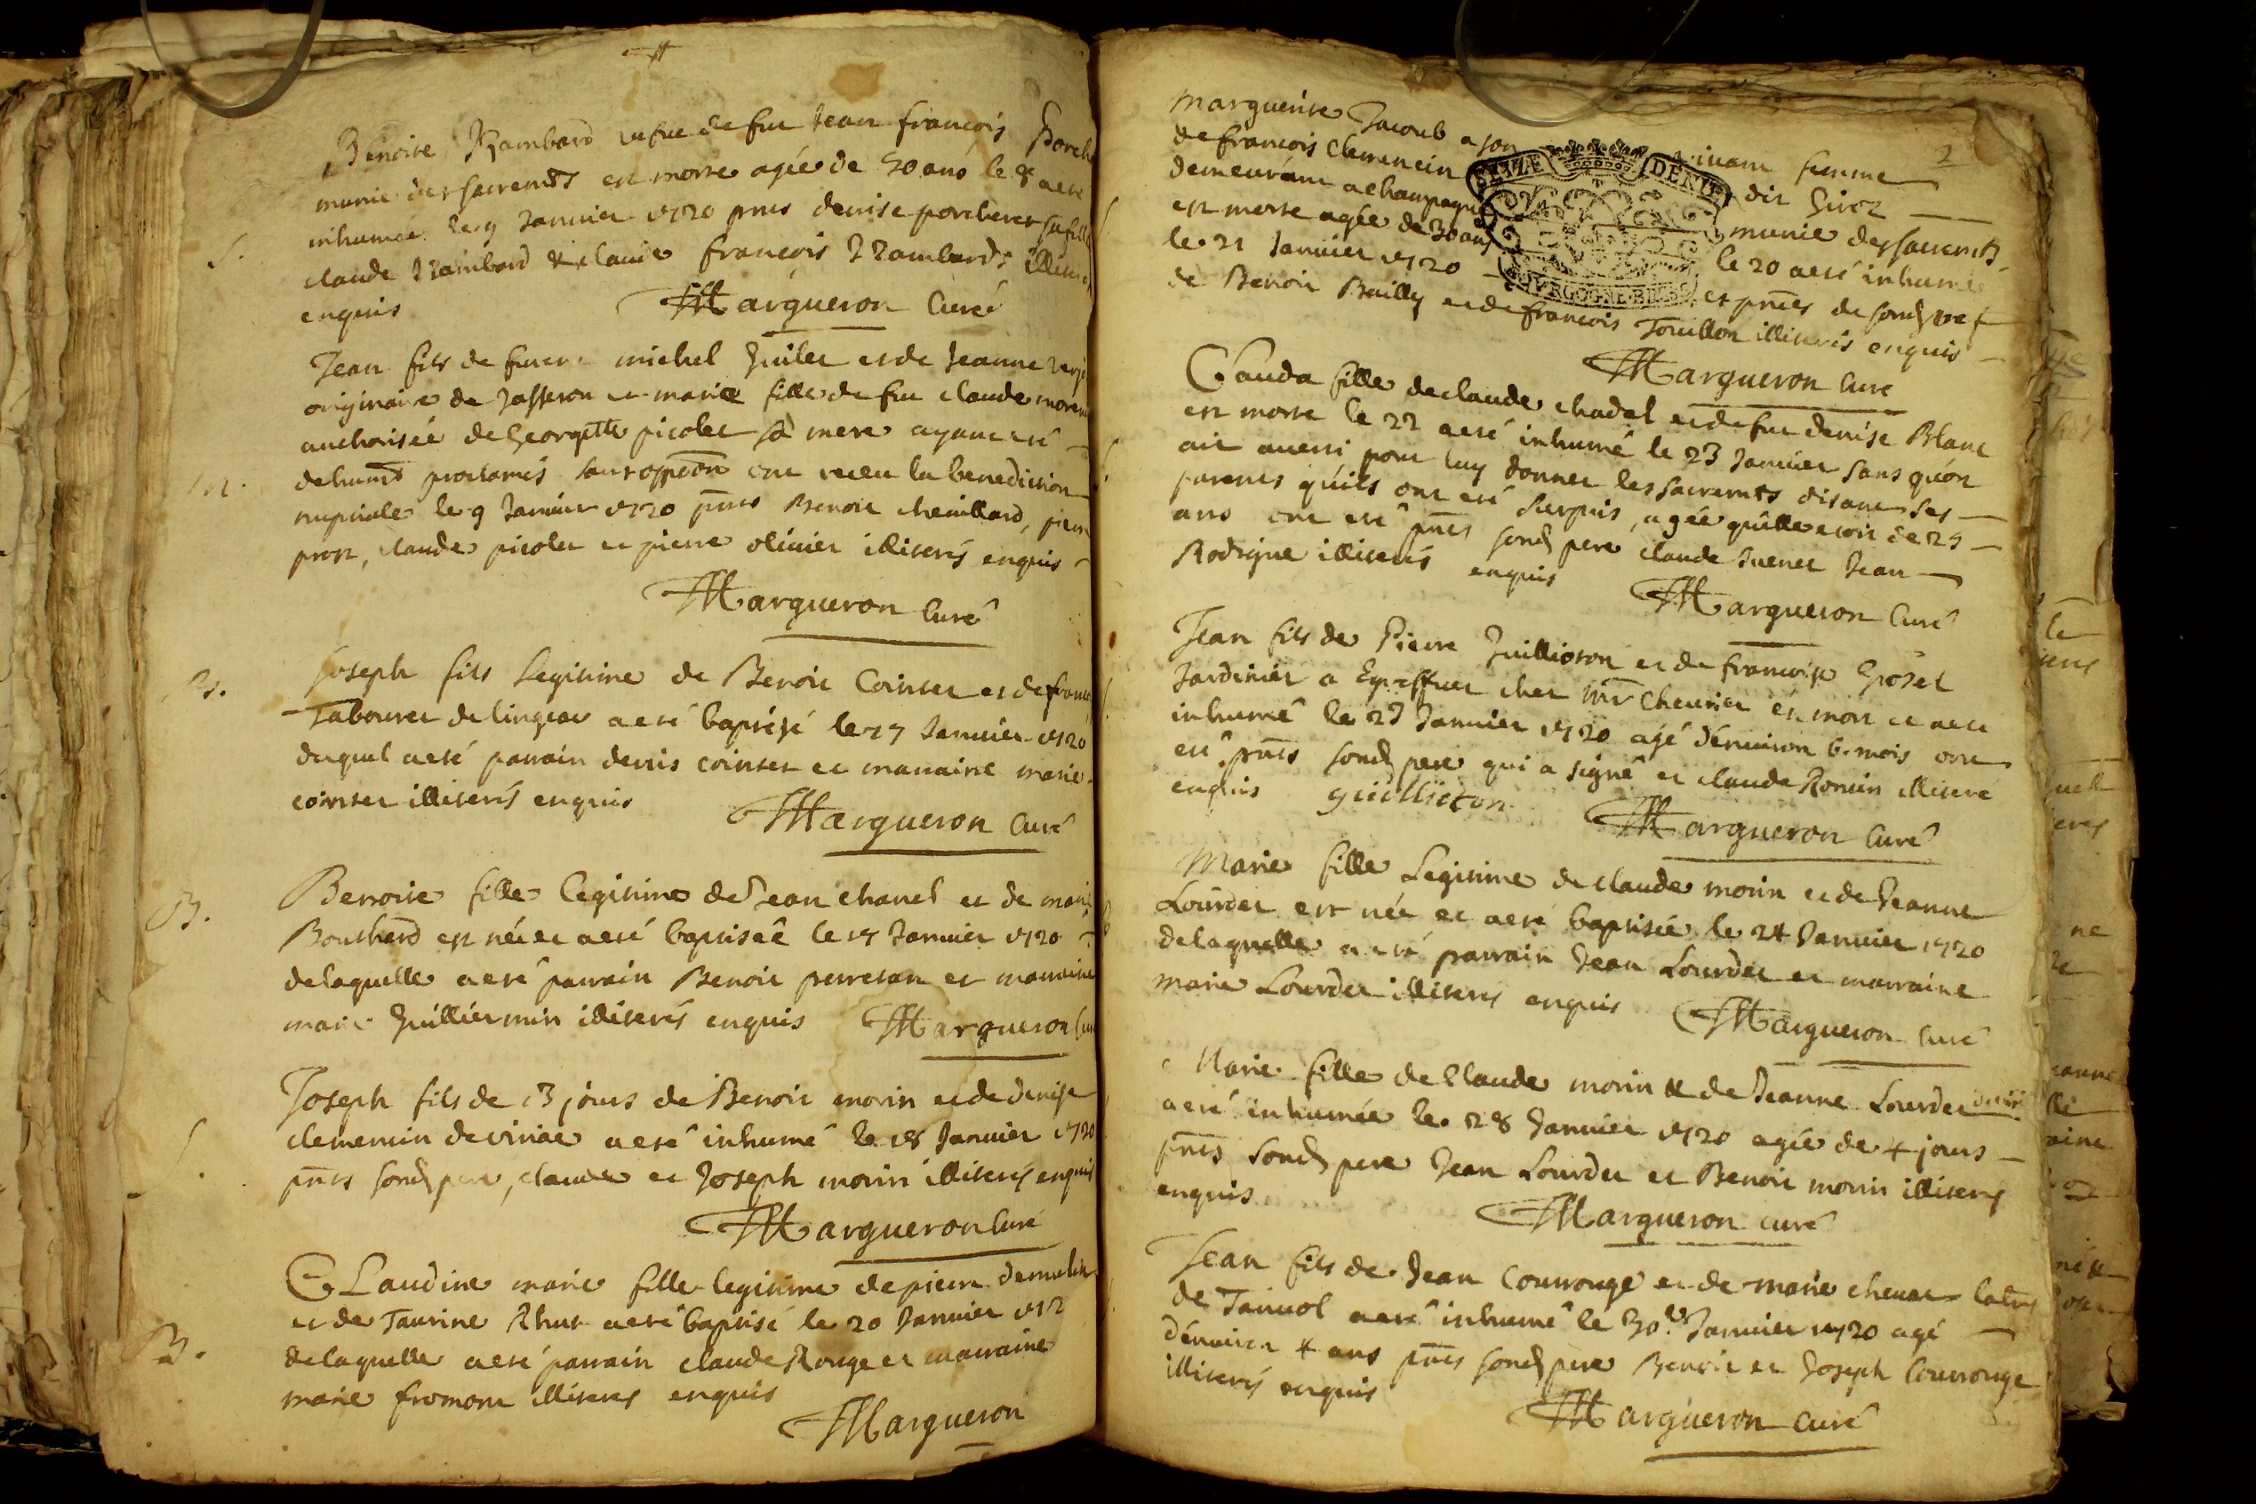 Benoite Rambard vefue de fue Jean françois Porch
munie des sacremts est morte agée de 50 ans le 8 a esté
inhumée le 9 Januier 1720 pnts denise porcheret sa fille
S. claude Rambard & claude françois Rambard illiterés
enquis Margueron Curé
Jean fils de fuere michel Guilet et de Jeanne
originaire de Jasseron et marie fille de fue claude moren
authorisée de Georgette picolet sa mere ayant esté
M. dehumt proclamés sans opposion ont receu la benediction
nuptiale le 9 Januier 1720 pnts Benoit cheuillard, pierre
prost, claude picolet et pierre oliuier illiterés enquis
Margueron Curé
B. Joseph fils Legitime de Benoit Cointet et de
Tabouret de lingeat a esté baptisé le 17 Januier 1720
duquel a esté parrain denis cointet et marraine marie
cointet illiterés enquis Margueron Curé
B. Benoite fille legitime de Jean chanel et de marie
Bouchard est née et a esté baptiseé le 18 Januier 1720
delaquelle a esté parrain Benoit perretan et marraine
marie Guilliermin illiterés enquis Margueron Curé
Joseph fils de 13 jours de Benoit morin et de denise
clemencin de viriat a esté inhumé le 18 Januier 1720
S. pnts sond pere, claude et Joseph morin illiterés enquis
Margueron Curé
CLaudine marie fille legitime de pierre
et de Taurine Rhut a esté baptisé le 20 Januier 172
B. delaquelle a esté parrain claude Rouge et marraine
marie fromont illiteres enquis
Margueron
2
Marguerite Jacoub a son viuant femme
de francois Clemencin dit Giroz
demeurant a champagne munie des sacremts
est morte agée de 30 ans le 20 a esté inhumée
le 21 Januier 1720 et pntes de sond
de Benoit Bailly et de francois Touillon illiterés enquis
SEIZE DENIE
BOVRGOGNE BRESSE
Margueron Curé
Clauda fille de claude chadal et de fue denise Blanc
est morte le 22 a esté inhumé le 23 Januier sans qu'on
ait auerti pour luy donner les sacremts disant ses
parents qu'ils ont esté surpris, agée qu'elle estoit de 25
ans ont esté pnts sond pere claude Juenet Jean
Rodrigue illiterés enquis Margueron Curé
Jean fils de Pierre Guillioton et de françoise Groset
Jardinier a chez Mr Cheurier est mort et a esté
inhumé le 23 Januier 1720 agé d'enuiron 6 mois ont
esté pnts sond pere qui a signé et claude Romin illiteré
enquis guillioton Margueron Curé
Marie fille Legitime de claude morin et de Jeanne
Lourdet est née et a esté baptisée le 24 Januier 1720
delaquelle a esté parrain Jean Lourdet et marraine
marie Lourdet illiterés enquis Margueron Curé
Marie fille de Claude morin & de Jeanne Lourdet
a esté inhumée le 28 Januier 1720 agée de 4 jours
pnts sond pere Jean Lourdet et Benoit morin illiterés
enquis Margueron curé
Jean fils de Jean Courrouge et de marie cheuat
de Tanuol a esté inhumé le 30e Januier 1720 agé
d'enuiron 4 ans pnts sond pere Benoit et Joseph Courrouge
illiterés enquis Margueron curé